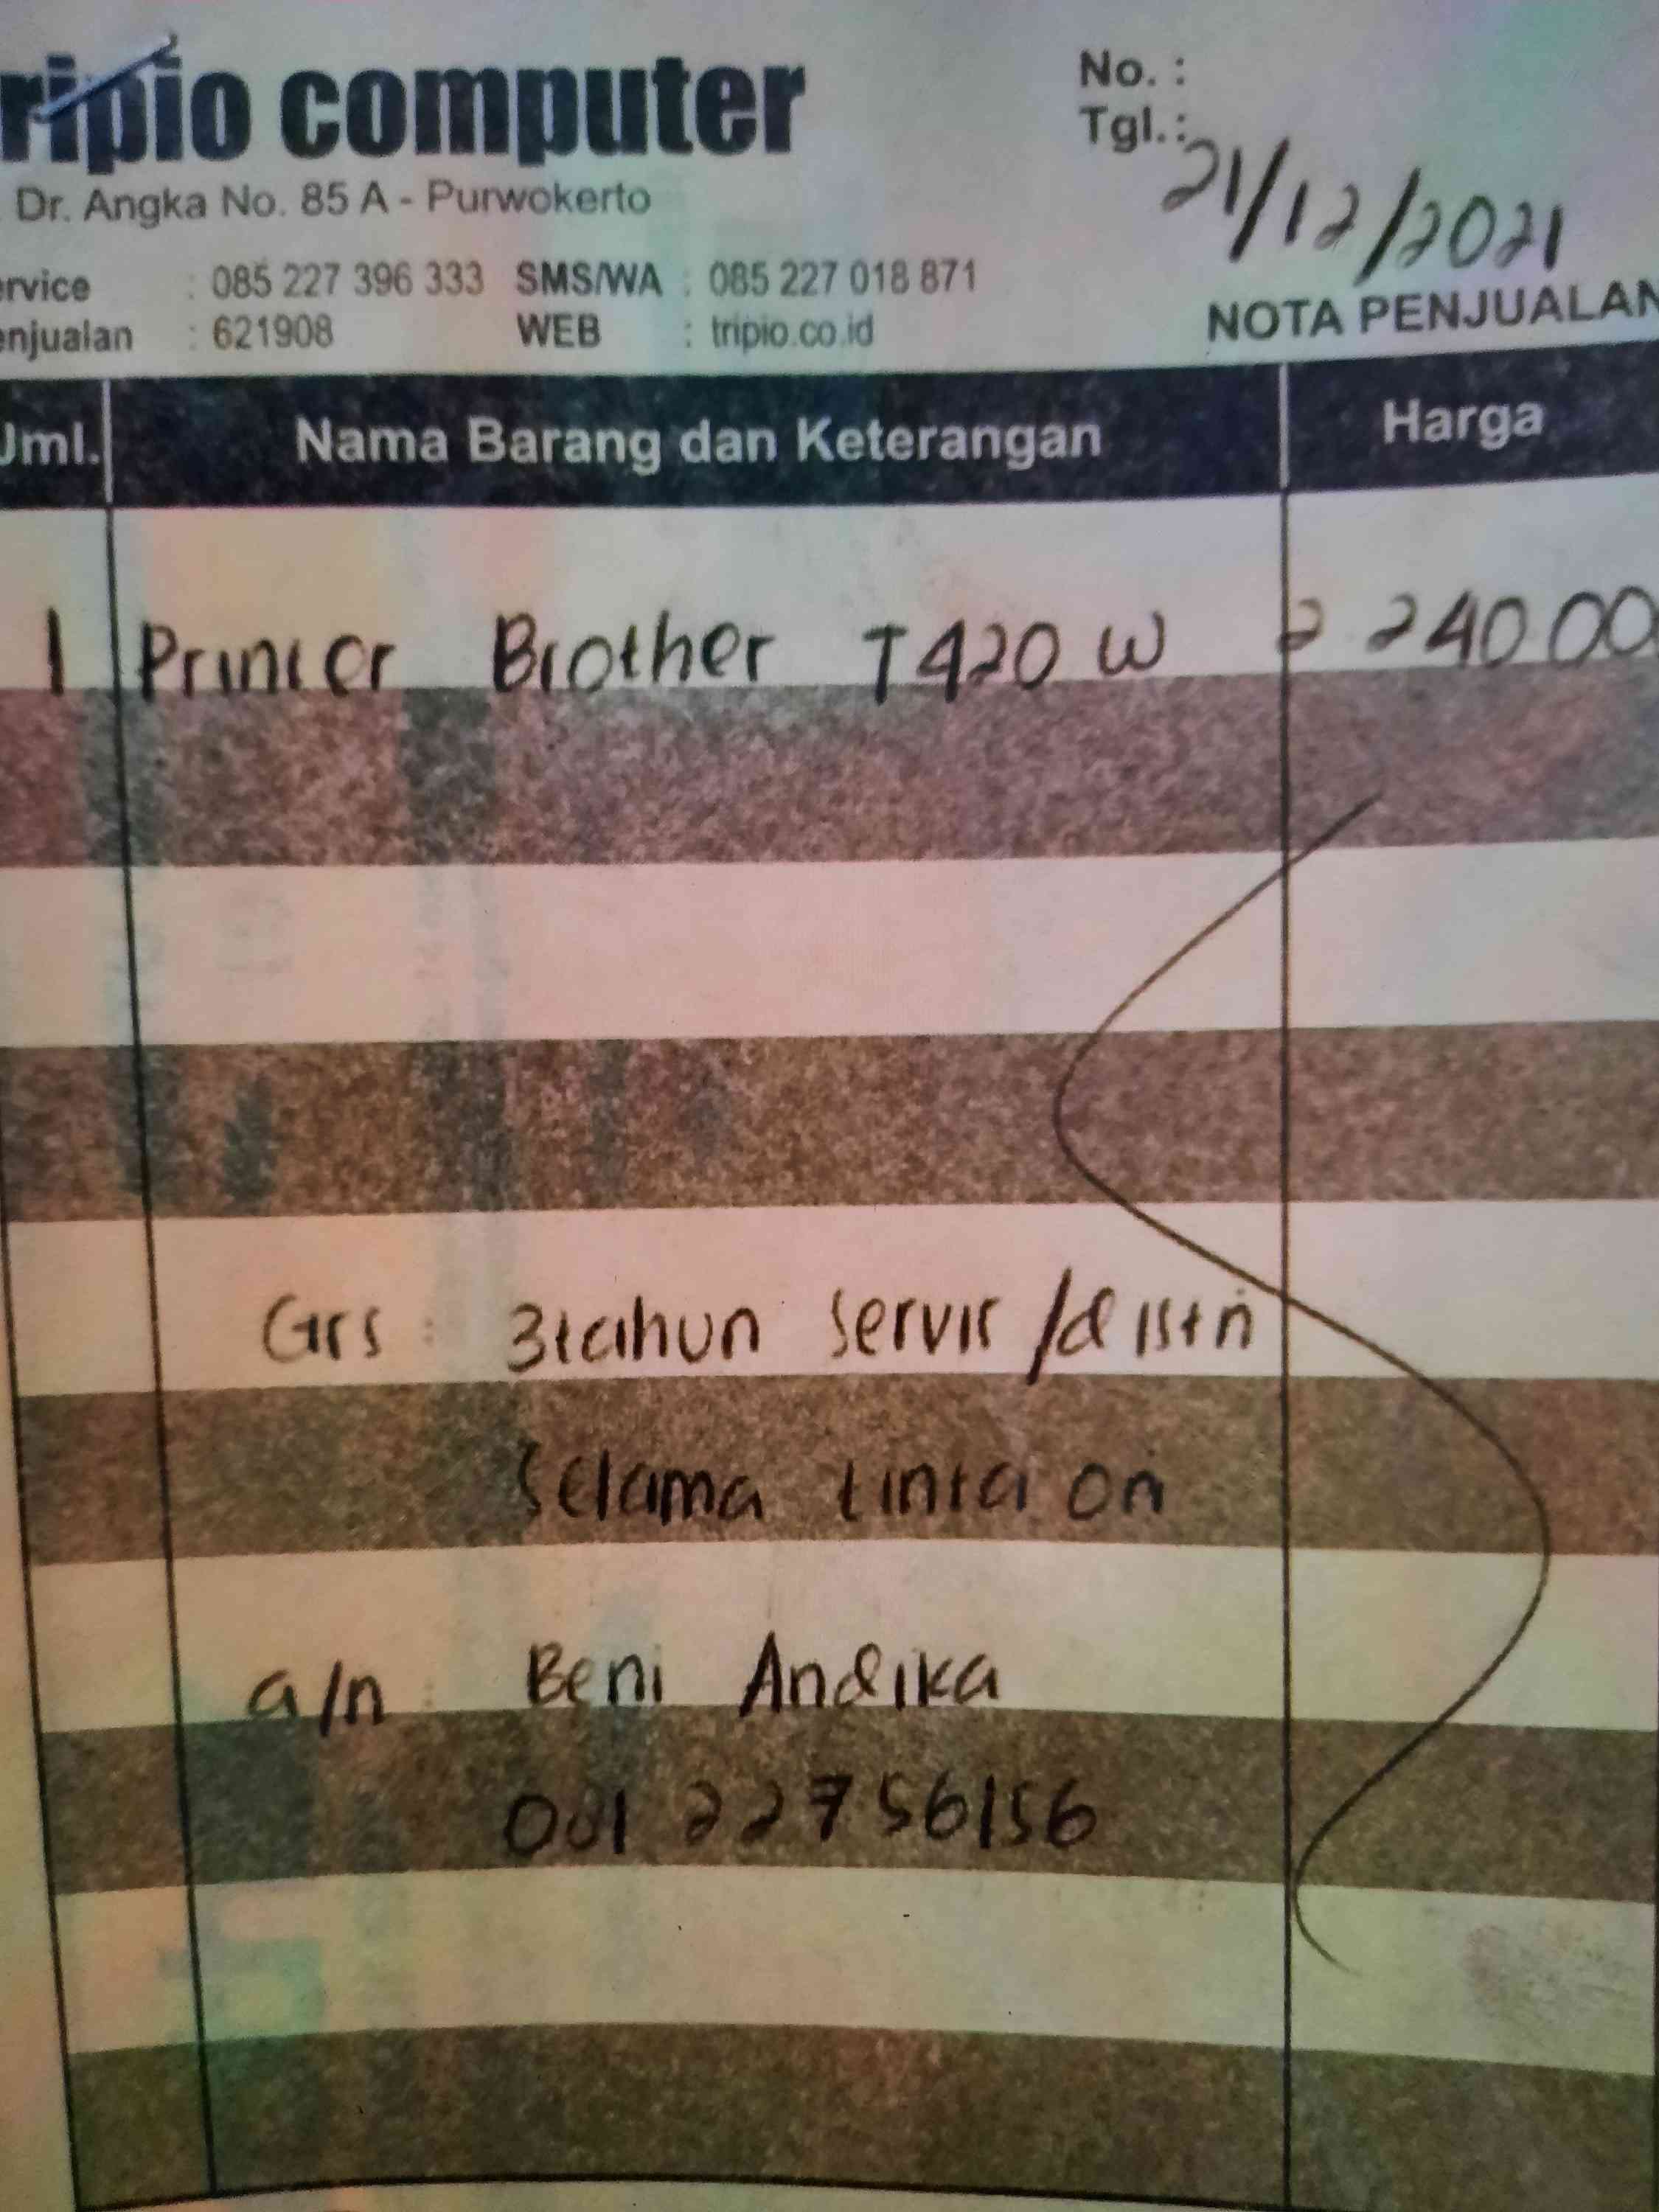 ripio computer
Dr. Angka No. 85 A - Purwokerto
No. :
Tgl. : 21/12/2021
ervice : 085 227 396 333 SMS/WA : 085 227 018 871
enjualan : 621908 WEB : tripio.co.id
NOTA PENJUALAN
Jml. Nama Barang dan Keterangan Harga
1 Printer Brother T420 W 2 240 00
Grs : 3 tahun servis / distri
selama tinta ori
a/n : Beni Andika
081 227 56156